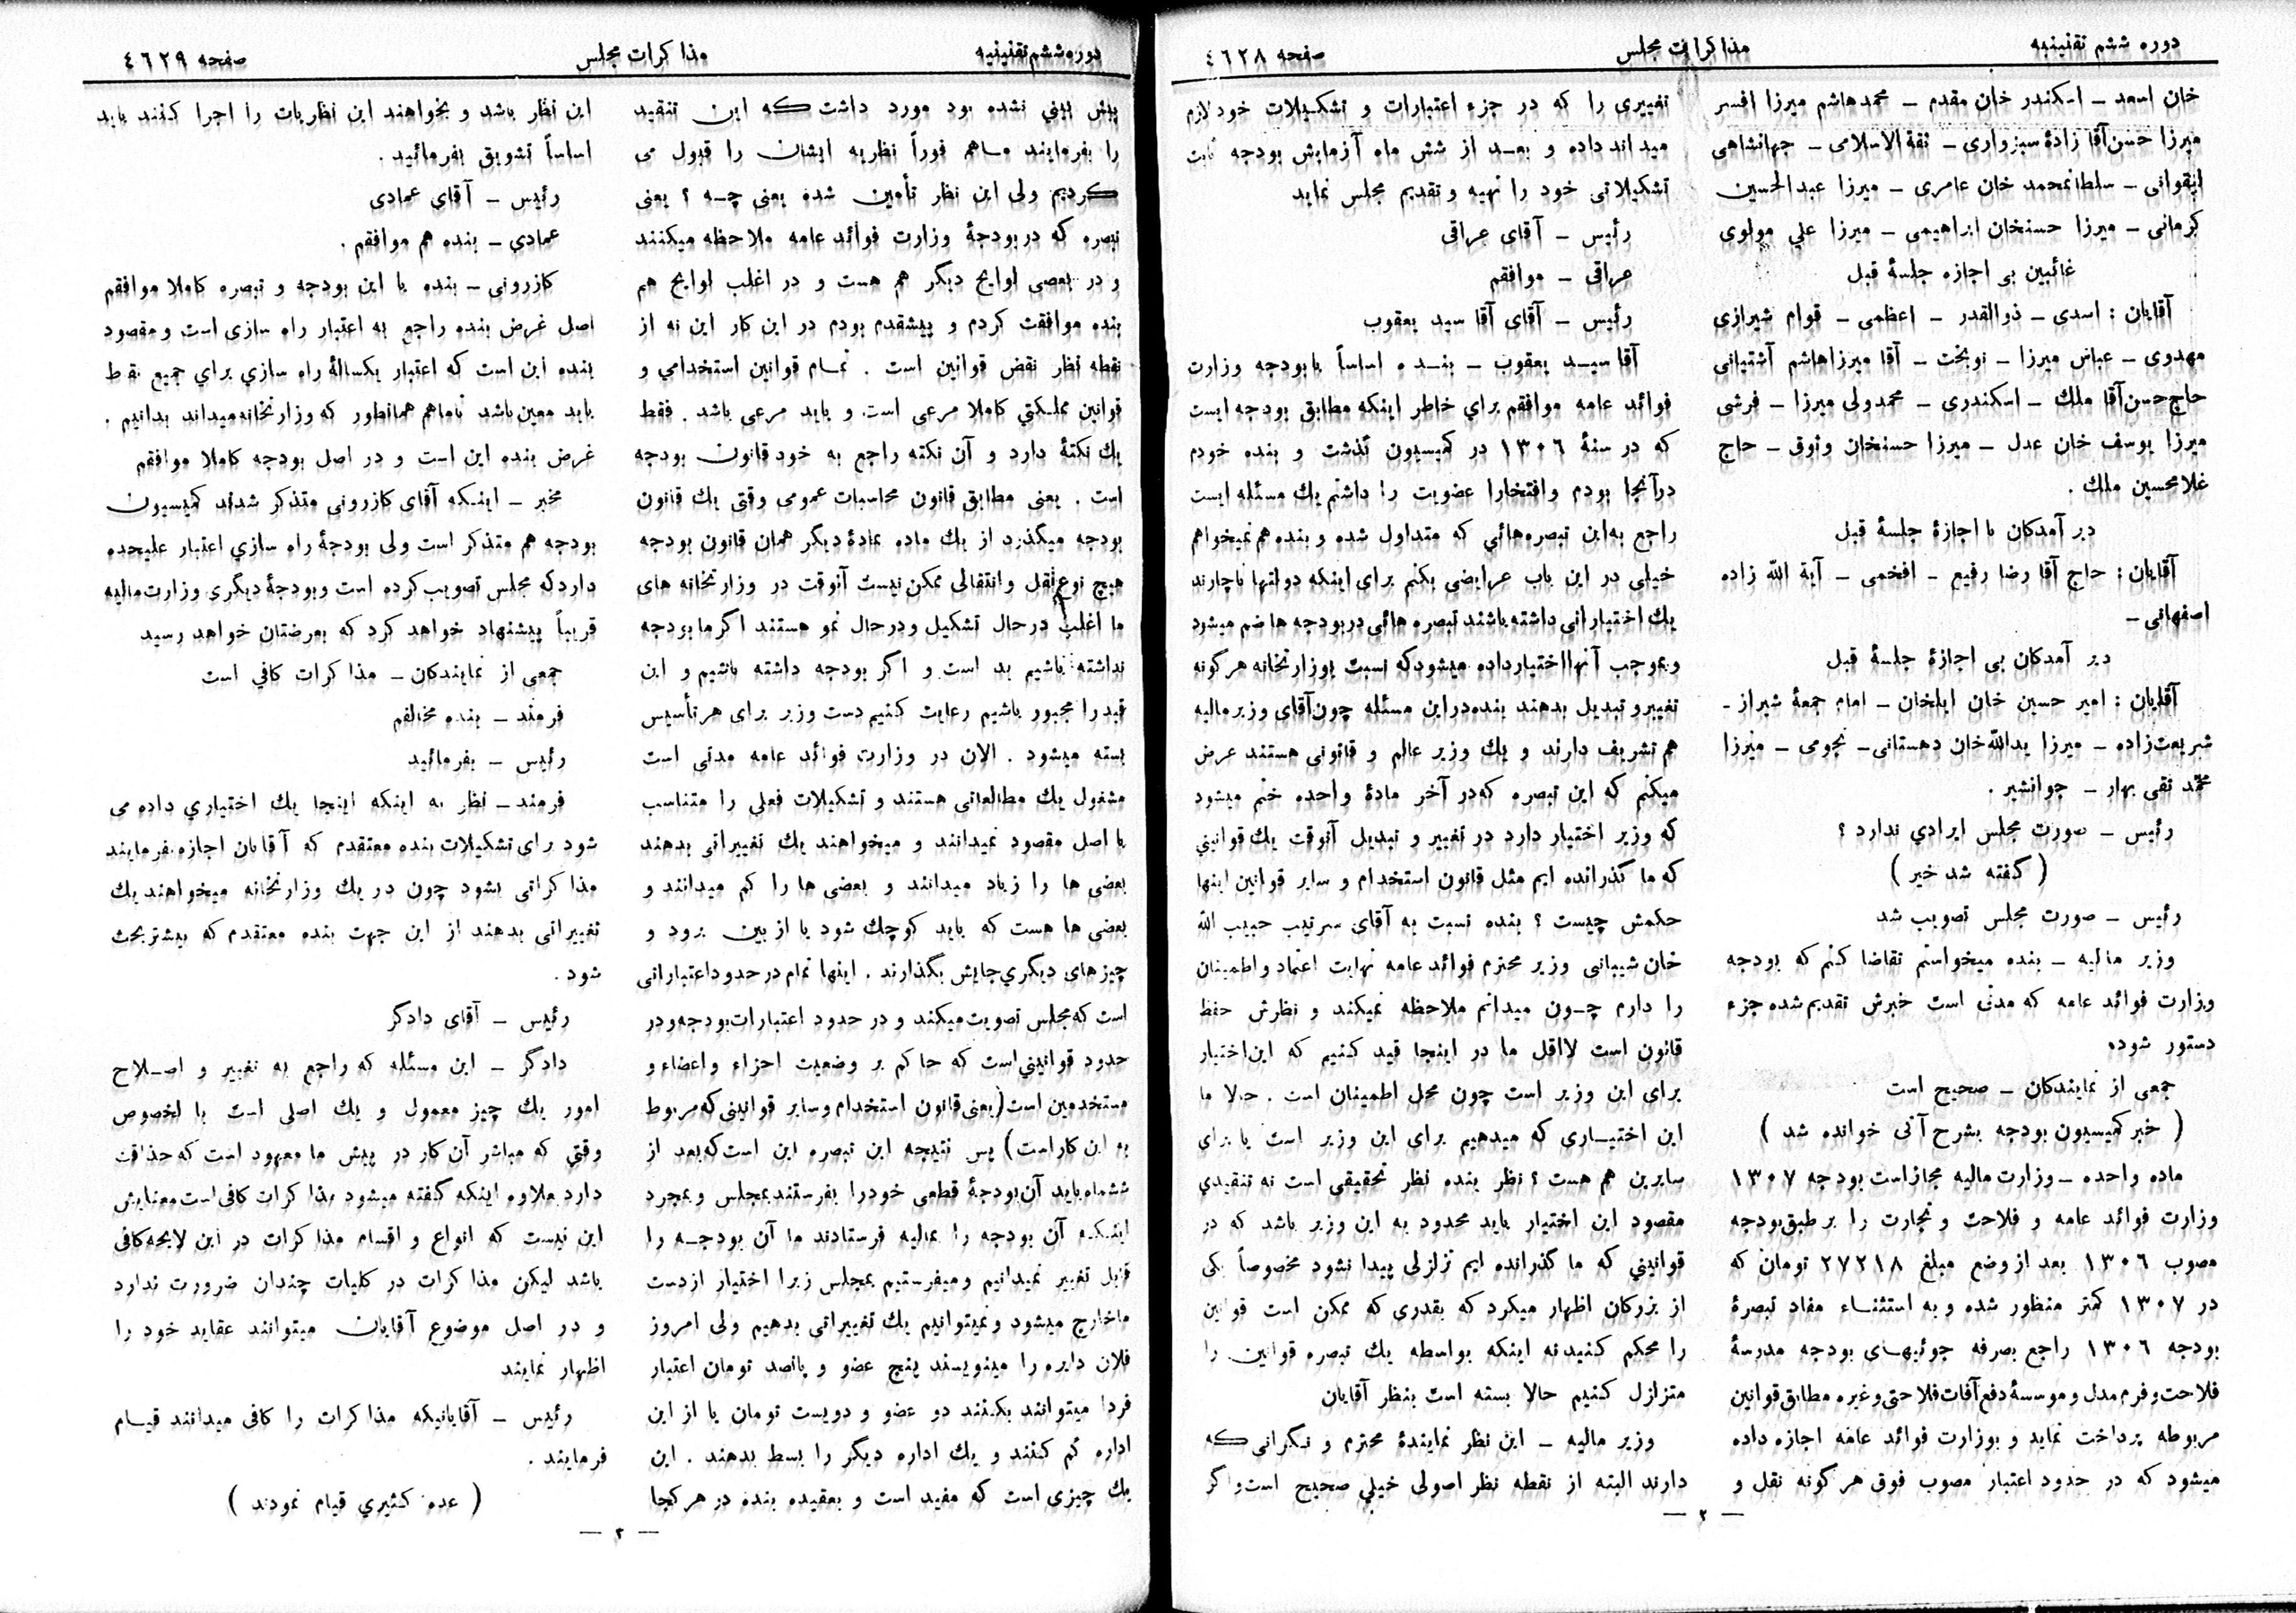 دوره ششم تقنینیه
مذاکرات مجلس
صفحه ٤٦٢٨
خان اسعد – اسکندر خان مقدم – محمدهاشم میرزا افسر
میرزا حسن‌آقا زادهٔ سبزواری – ثقة الاسلامی – جهانشاهی
ایقوانی – سلطانمحمد خان عامری – میرزا عبدالحسین
کرمانی – میرزا حسنخان ابراهیمی – میرزا علي مولوی
غائبین بی اجازه جلسهٔ قبل
آقایان : اسدی – ذوالقدر – اعظمی – قوام شیرازی
مهدوی – عباس میرزا – نوبخت – آقا میرزاهاشم آشتیانی
حاج حسن‌آقا ملك – اسکندری – محمدولی میرزا – فرشی
میرزا یوسف خان عدل – میرزا حسنخان وثوق – حاج
غلامحسین ملك .
دیر آمدکان با اجازهٔ جلسهٔ قبل
آقایان : حاج آقا رضا رفیع – افخمی – آیة الله زاده
اصفهانی –
دیر آمدکان بی اجازهٔ جلسهٔ قبل
آقایان : امیر حسین خان ایلخان – امام جمعهٔ شیراز –
شریعت‌زاده – میرزا یدالله‌خان دهستانی – نجومی – میرزا
محمد تقی بهار – جوانشیر .
رئیس – صورت مجلس ایرادي ندارد ؟
( گفته شد خیر )
رئیس – صورت مجلس تصویب شد
وزیر مالیه – بنده میخواستم تقاضا کنم که بودجه
وزارت فوائد عامه که مدتی است خبرش تقدیم شده جزء
دستور شود.
جمعی از نمایندکان – صحیح است
( خبر کمیسیون بودجه بشرح آتی خوانده شد )
ماده واحده – وزارت مالیه مجازاست بودجه ١٣٠٧
وزارت فوائد عامه و فلاحت و تجارت را بر طبق بودجه
مصوب ١٣٠٦ بعد از وضع مبلغ ٢٧٢١٨ تومان که
در ١٣٠٧ کمتر منظور شده و به استثناء مفاد تبصرهٔ
بودجه ١٣٠٦ راجع بصرفه جوئیهای بودجه مدرسهٔ
فلاحت و فرم مدل و موسسهٔ دفع آفات فلاحتی وغیره مطابق قوانین
مربوطه پرداخت نماید و بوزارت فوائد عامه اجازه داده
میشود که در حدود اعتبار مصوب فوق هر گونه نقل و
تغییری را که در جزء اعتبارات و تشکیلات خود لازم
میداند داده و بعد از شش ماه آزمایش بودجه ثابت
تشکیلاتی خود را تهیه و تقدیم مجلس نماید
رئیس – آقای عراقی
عراقی – موافقم
رئیس – آقای آقا سید یعقوب
آقا سید یعقوب – بنده اساساً با بودجه وزارت
فوائد عامه موافقم براي خاطر اینکه مطابق بودجه ایست
که در سنهٔ ١٣٠٦ در کمیسیون گذشت و بنده خودم
درآنجا بودم وافتخارا عضویت را داشتم یك مسئله ایست
راجع به‌این تبصره‌هائي که متداول شده و بنده هم نمیخواهم
خیلی در این باب عرایضی بکنم برای اینکه دولتها ناچارند
یك اختیاراتی داشته باشند تبصره هائی در بودجه ها ضم میشود
و بموجب آنها اختیار داده میشود که نسبت بوزارتخانه هر گونه
تغییر و تبدیل بدهند بنده دراین مسئله چون آقای وزیر مالیه
هم تشریف دارند و یك وزیر عالم و قانونی هستند عرض
میکنم که این تبصره که در آخر مادهٔ واحده ختم میشود
که وزیر اختیار دارد در تغییر و تبدیل آنوقت یك قوانیني
که ما گذرانده ایم مثل قانون استخدام و سایر قوانین اینها
حکمش چیست ؟ بنده نسبت به آقای سرتیب حبیب الله
خان شیبانی وزیر محترم فوائد عامه نهایت اعتماد واطمینان
را دارم چون میدانم ملاحظه نمیکند و نظرش حفظ
قانون است لااقل ما در اینجا قید کنیم که این اختیار
برای این وزیر است چون محل اطمینان است . حالا ما
این اختیاری که میدهیم برای این وزیر است یا برای
سایرین هم هست ؟ نظر بنده نظر تحقیقی است نه تنقیدي
مقصود این اختیار باید محدود به این وزیر باشد که در
قوانیني که ما گذرانده ایم تزلزلی پیدا نشود مخصوصاً یکی
از بزرکان اظهار میکرد که بقدری که ممکن است قوانین
را محکم کنید نه اینکه بواسطه یك تبصره قوانین را
متزلزل کنیم حالا بسته است بنظر آقایان
وزیر مالیه – این نظر نمایندهٔ محترم و نگرانی که
دارند البته از نقطه نظر اصولی خیلي صحیح است واگر
— ٢ —
دوره ششم تقنینیه
مذاکرات مجلس
صفحه ٤٦٢٩
پیش بیني نشده بود مورد داشت که این تنقید
را بفرمایند ماهم فوراً نظریه ایشان را قبول می
کردیم ولی این نظر تأمین شده یعنی چه ؟ یعنی
تبصره که در بودجهٔ وزارت فوائد عامه ملاحظه میکنند
و در بعصی لوایح دیگر هم هست و در اغلب لوایح هم
بنده موافقت کردم و پیشقدم بودم در این کار این نه از
نقطه نظر نقض قوانین است . تمام قوانین استخدامي و
قوانین مملکتي کاملا مرعی است و باید مرعی باشد . فقط
یك نکتهٔ دارد و آن نکته راجع به خود قانون بودجه
است . یعنی مطابق قانون محاسبات عمومی وقتی یك قانون
بودجه میگذرد از یك ماده بمادهٔ دیگر همان قانون بودجه
هیچ نوع نقل و انتقالی ممکن نیست آنوقت در وزارتخانه های
ما اغلب درحال تشکیل ودرحال نمو هستند اگر ما بودجه
نداشته باشیم بد است و اگر بودجه داشته باشیم و این
قید را مجبور باشیم رعایت کنیم دست وزیر برای هر تأسیس
بسته میشود . الان در وزارت فوائد عامه مدتی است
مشغول یك مطالعاتی هستند و تشکیلات فعلی را متناسب
با اصل مقصود نمیدانند و میخواهند یك تغییراتی بدهند
بعضی ها را زیاد میدانند و بعضی ها را کم میدانند و
بعضی ها هست که باید کوچك شود یا از بین برود و
چیزهای دیگري جایش بگذارند . اینها تمام در حدود اعتباراتی
است که مجلس تصویب میکند و در حدود اعتبارات بودجه و در
حدود قوانیني است که حاکم بر وضعیت اجزاء واعضاء و
مستخدمین است (یعنی قانون استخدام وسایر قوانینی که مربوط
به این کار است) پس نتیجه این تبصره این است که بعد از
ششماه باید آن بودجهٔ قطعی خودرا بفرستند بمجلس و بمجرد
اینکه آن بودجه را بمالیه فرستادند ما آن بودجه را
قابل تغییر نمیدانیم ومیفرستیم بمجلس زیرا اختیار از دست
ما خارج میشود و نمیتوانیم یك تغییراتی بدهیم ولی امروز
فلان دایره را مینویسند پنج عضو و پانصد تومان اعتبار
فردا میتوانند بکنند دو عضو و دویست تومان یا از این
اداره کم کنند و یك اداره دیگر را بسط بدهند . این
یك چیزی است که مفید است و بعقیده بنده در هر کجا
این نظر باشد و بخواهند این نظریات را اجرا کنند باید
اساساً تشویق بفرمائید .
رئیس – آقای عمادی
عمادي – بنده هم موافقم .
کازرونی – بنده با این بودجه و تبصره کاملا موافقم
اصل غرض بنده راجع به اعتبار راه سازی است و مقصود
بنده این است که اعتبار یکسالهٔ راه سازي براي جمیع نقاط
باید معین باشد تا ماهم همانطور که وزارتخانه میداند بدانیم .
غرض بنده این است و در اصل بودجه کاملا موافقم
مخبر – اینکه آقای کازرونی متذکر شدند کمیسیون
بودجه هم متذکر است ولی بودجهٔ راه سازي اعتبار علیحده
دارد که مجلس تصویب کرده است و بودجهٔ دیگری وزارت مالیه
قریباً پیشنهاد خواهد کرد که بعرضتان خواهد رسید
جمعی از نمایندکان – مذاکرات کافي است
فرمند – بنده مخالفم
رئیس – بفرمائید
فرمند – نظر به اینکه اینجا یك اختیاري داده می
شود برای تشکیلات بنده معتقدم که آقایان اجازه بفرمایند
مذاکراتی بشود چون در یك وزارتخانه میخواهند یك
تغییراتی بدهند از این جهت بنده معتقدم که بیشتر بحث
شود .
رئیس – آقای دادگر
دادگر – این مسئله که راجع به تغییر و اصلاح
امور یك چیز معمول و یك اصلی است با لخصوص
وقتي که مباشر آن کار در پیش ما معهود است که حذاقت
دارد بعلاوه اینکه گفته میشود مذاکرات کافی است معنایش
این نیست که انواع و اقسام مذاکرات در این لایحه کافی
باشد لیکن مذاکرات در کلیات چندان ضرورت ندارد
و در اصل موضوع آقایان میتوانند عقاید خود را
اظهار نمایند
رئیس – آقایانیکه مذاکرات را کافی میدانند قیام
فرمایند .
( عده کثیري قیام نمودند )
— ٣ —